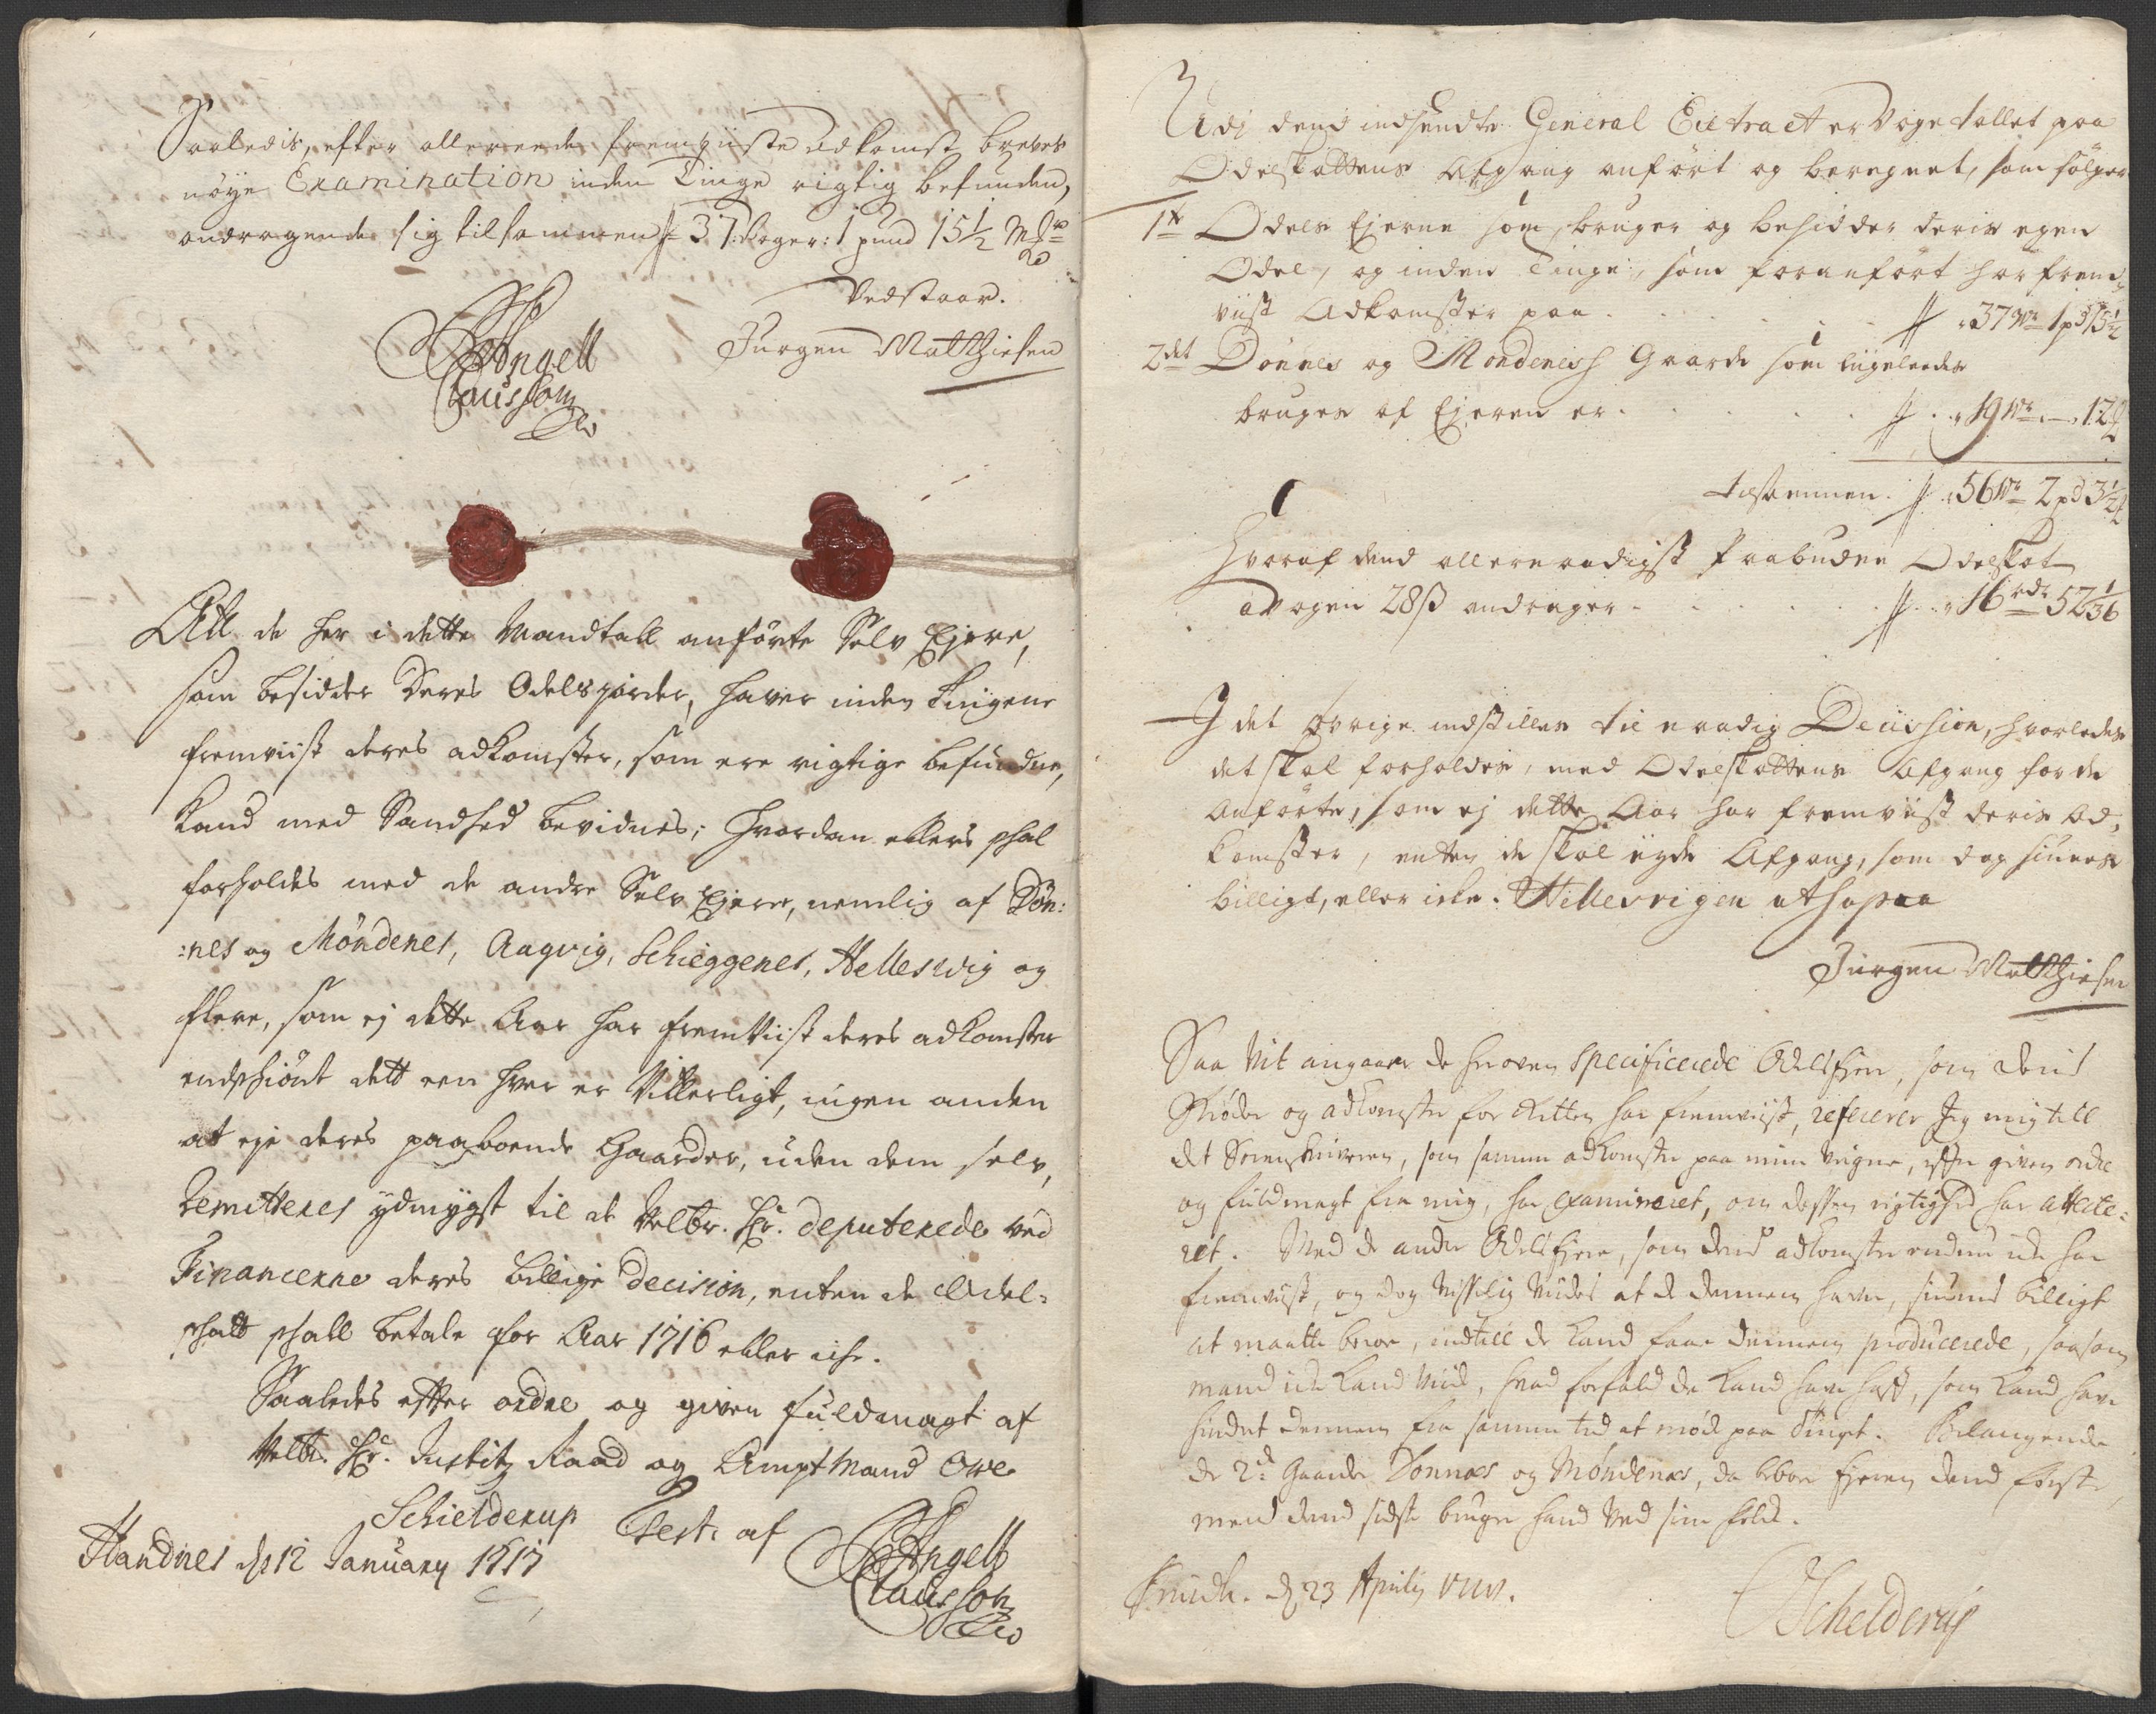 Saaledis, efter allereede fremviiste adkomst breves
nøye Examination inden Tinge rigtig befunden,
andragende sig tilsammen # 37 Woger: 1 pund 15½ Mkr
Vedstaar.
Jurgen Matthiesen
Angell
Claussøn
Att de her i dette Mandtall anførte Selv Ejere,
som besidder Deres Odelsgorder, haver inden Tingene
fremviist deres adkomster, som ere rigtige befundne,
Kand med Sandhed bevidnes; hvordan ellers skal
forholdes med de andre Selv Ejere, nemlig af Døn:
:nes og Møndenes, Aagvig, Schieggenes, Hellesvig og
flere, som ej dette Aar har fremViist deres adkomster
endskiønt dett een hver er Vitterligt, ingen anden
at eje deres paaboende Gaarder, uden dem selv,
Remitteres ydmygst til de Velbr. Hr. deputerede ved
Financerne deres billige decision, enten de Odel-
skatt skall betale for Aar 1716 eller iche.
Saaledes efter ordre og given fuldmagt af
Velbr. Hr. Justitz Raad og AmptMand Ove
Schielderup Test. af
Handnes d 12 January 1717
Angell
Claussøn
Udj dend indsendte General Extract er Vogetallet paa
Odelskattens Afgang anført og beregnet, som følger
1te Odels Ejerne som bruger og besidder deris egen
Odel, og inden Tinge, som foranført har frem-
viist Adkomster paa . . . . # 37 Wr 1 pd 15½
2det Dønnes og Mondenes Gaarde som liigeleedes
bruges af Ejeren er . . . . # 19 Wr — 12
tilsammen . # 56 Wr 2 pd 3½
Hvoraf dend allernaadigst Paabudne Odelskat
a Wogen 28 ß andrager . . . . # 16 rdr 52 1/36
I det øvrige indstilles til naadig Decission, hvorledes
det skal forholdes, med Odelskattens Afgang for de
Anførte, som ej dette Aar har fremviist deris Ad-
komster, enten de skal nyde Afgang, som dog siunes
billigt, eller icke.
Jurgen Matthiesen
Saa Vit angaaer de her oven specificerede Odels Ejere, som deris
Skiøder og adkomster for Retten har fremviist, refererer Jeg mig till
det Sorenskriveren, som samme adkomster paa mine Vegne, efter given ordre
og fuldmagt fra mig, har examineret, om dessen rigtighed har atteste-
ret. Med de andre Odels Ejere, som deris adkomster endnu icke har
fremviist, og dog visselig viides at de dennem haver, siunes billigt
at maatte beroe, indtill de kand faae dennem producerede, saasom
mand icke kand viide, hvad forfald de kand have hafft, som kand have
hindret dennem fra samme tid at møde paa Tinget. Belangende
de 2de Gaarde Dønnæs og Møndenæs, da beboer Ejeren dend første,
mens dend sidste bruger hand ved sine folk.
d 23 Aprilis
Schelderup